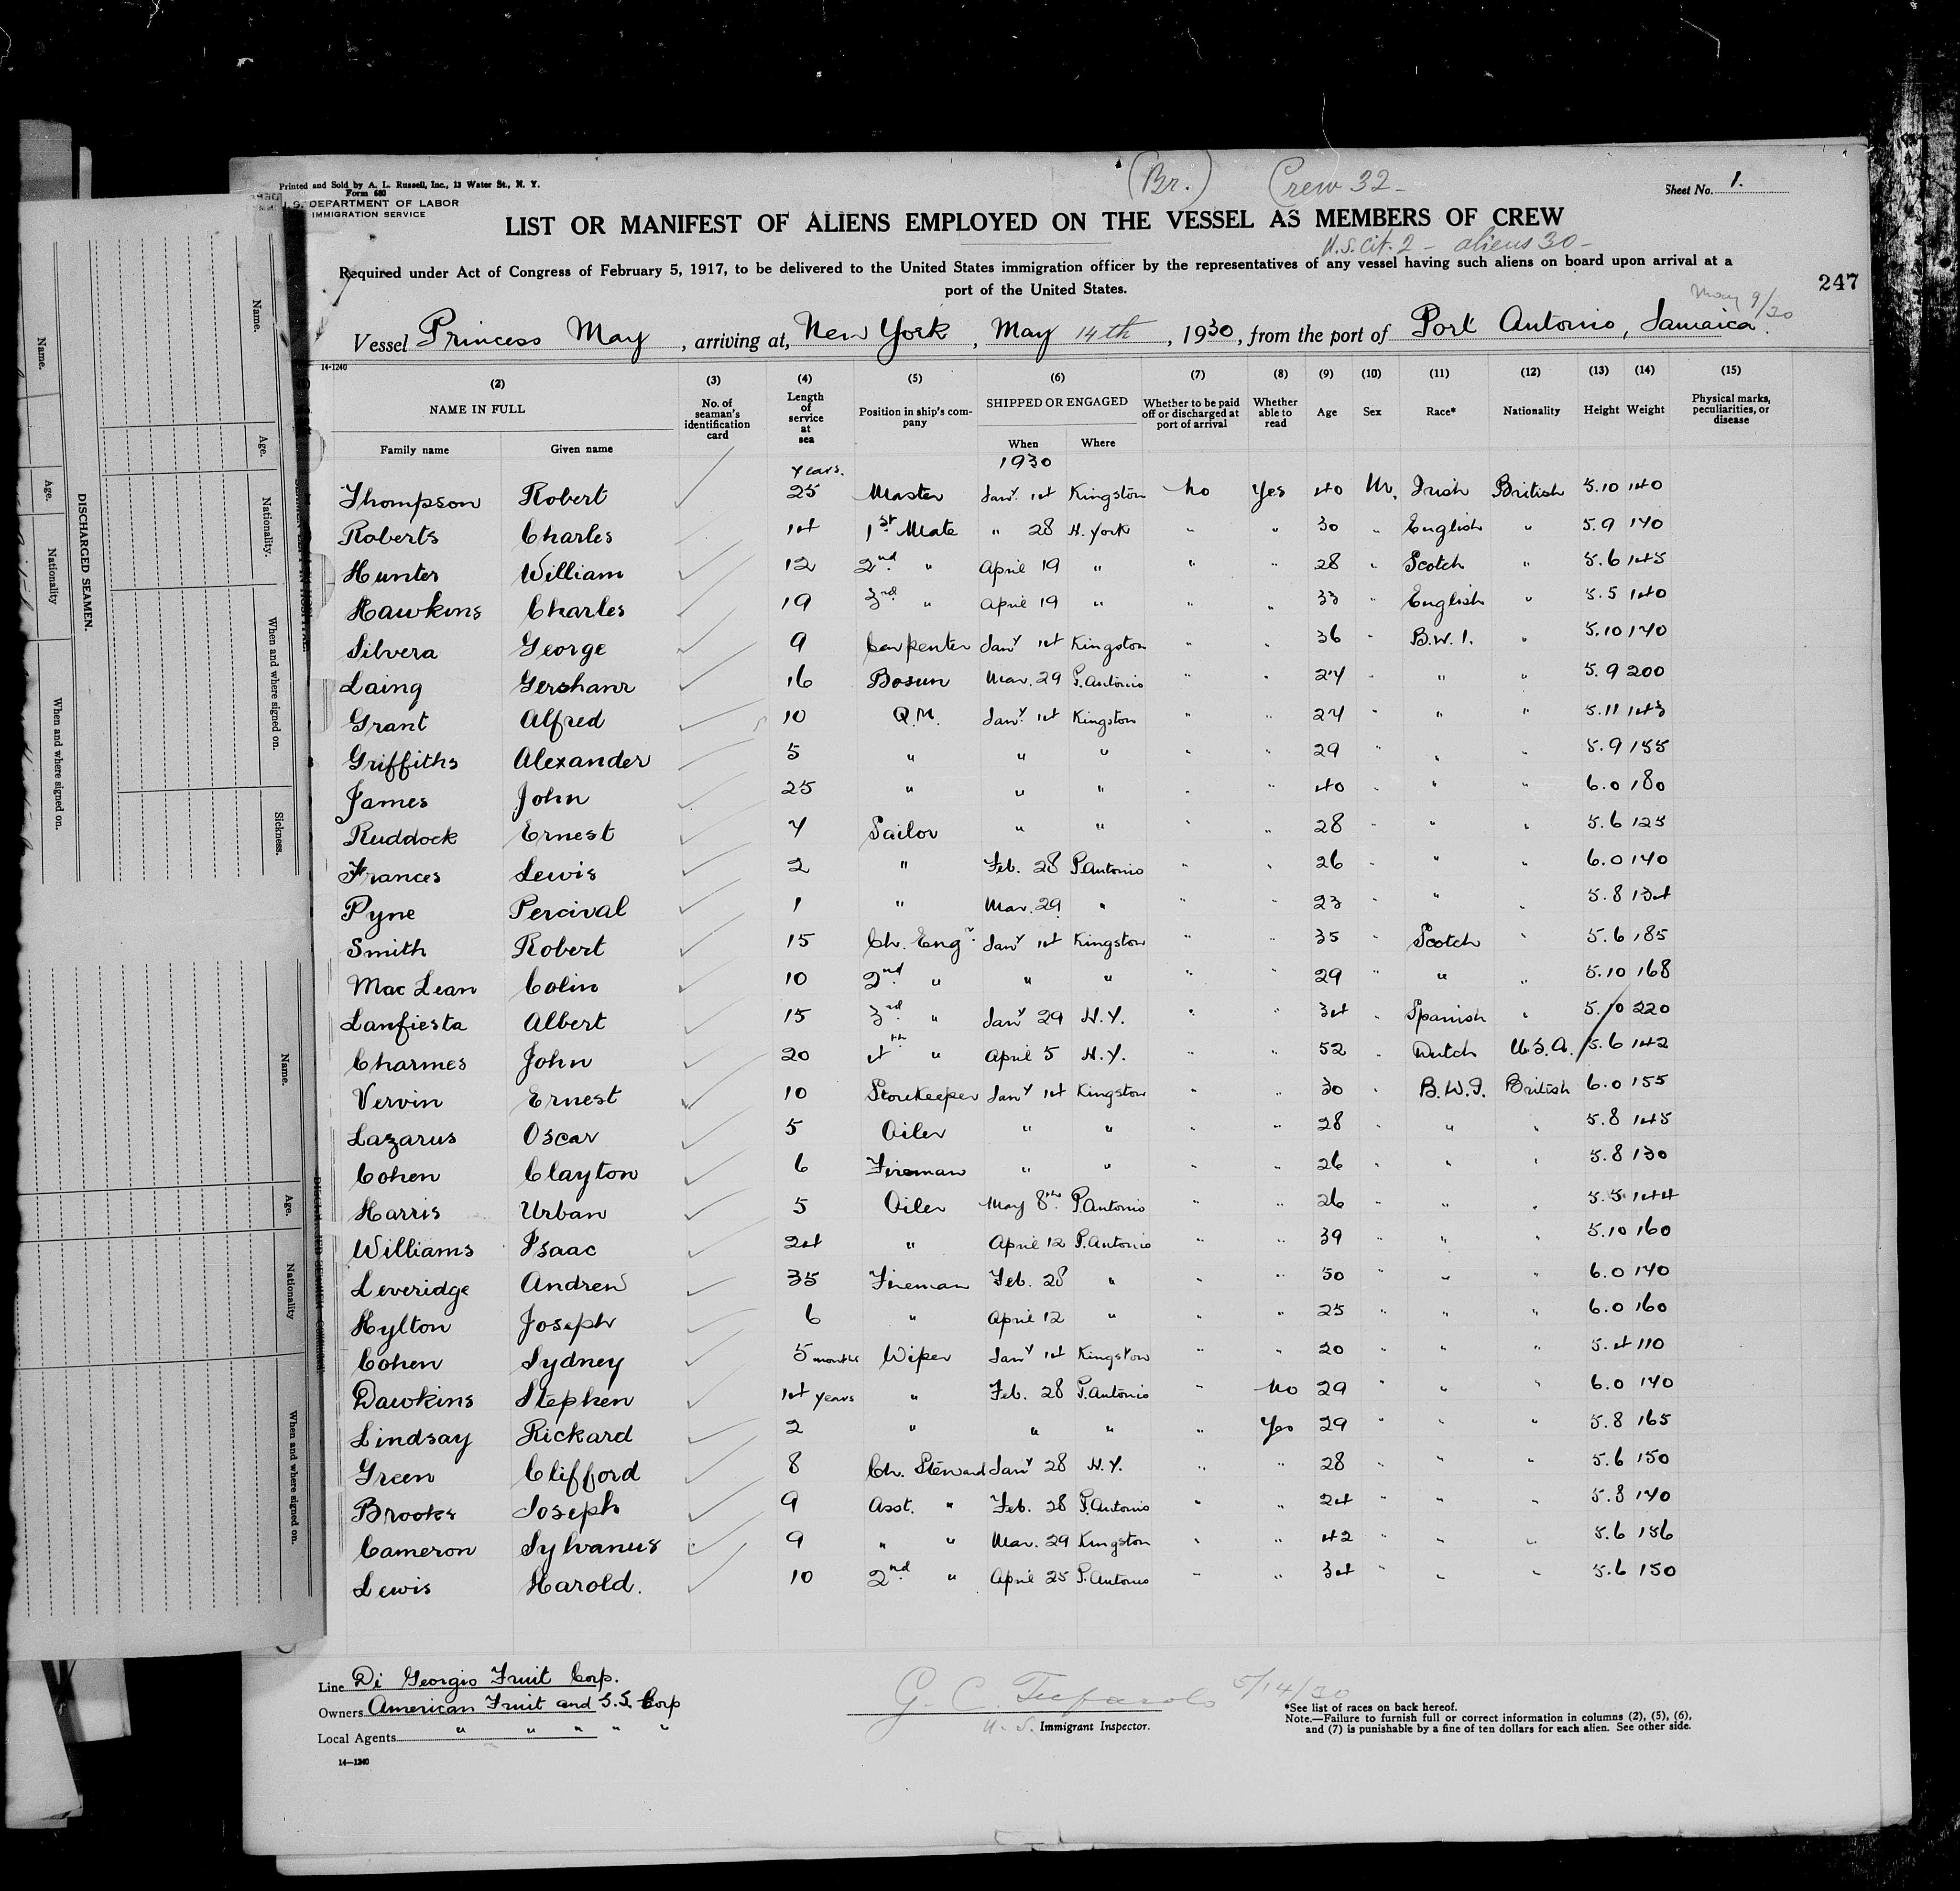 Printed and Sold by A. L. Russell, Inc., 13 Water St., N. Y.
Form 680
U. S. DEPARTMENT OF LABOR
IMMIGRATION SERVICE
(Br.) Crew 32 -
Sheet No. 1.
LIST OR MANIFEST OF ALIENS EMPLOYED ON THE VESSEL AS MEMBERS OF CREW
U.S. Cit. 2 - aliens 30 -
Required under Act of Congress of February 5, 1917, to be delivered to the United States immigration officer by the representatives of any vessel having such aliens on board upon arrival at a
port of the United States.
247
May 9/30
Vessel Princess May, arriving at, New York, May 14th, 1930, from the port of Port Antonio, Jamaica.
14-1240
(2) (3) (4) (5) (6) (7) (8) (9) (10) (11) (12) (13) (14) (15)
NAME IN FULL No. of seaman's identification card Length of service at sea Position in ship's company SHIPPED OR ENGAGED Whether to be paid off or discharged at port of arrival Whether able to read Age Sex Race* Nationality Height Weight Physical marks, peculiarities, or disease
Family name Given name When Where
Years. 1930
Thompson Robert 25 Master Jany. 1st Kingston No Yes 40 M. Irish British 5.10 140
Roberts Charles 14 1st Mate " 28 N. York " " 30 " English " 5.9 170
Hunter William 12 2nd " April 19 " " " 28 " Scotch " 5.6 145
Hawkins Charles 19 3rd " April 19 " " " 33 " English " 5.5 140
Silvera George 9 Carpenter Jany 1st Kingston " " 36 " B.W.I. " 5.10 170
Laing Gershanr 16 Bosun Mar. 29 P. Antonio " " 27 " " " 5.9 200
Grant Alfred 10 Q.M. Jany. 1st Kingston " " 27 " " " 5.11 143
Griffiths Alexander 5 " " " " " 29 " " " 5.9 155
James John 25 " " " " " 40 " " " 6.0 180
Ruddock Ernest 7 Sailor " " " " 28 " " " 5.6 125
Frances Lewis 2 " Feb. 28 P. Antonio " " 26 " " " 6.0 170
Pyne Percival 1 " Mar. 29 " " " 23 " " " 5.8 134
Smith Robert 15 Ch. Engr. Jany 1st Kingston " " 35 " Scotch " 5.6 185
Mac Lean Colin 10 2nd " " " " " 29 " " " 5.10 168
Lanfiesta Albert 15 3rd " Jany 29 N.Y. " " 34 " Spanish " 5.10 220
Charmes John 20 4th " April 5 N.Y. " " 52 " Dutch U.S.A. 5.6 142
Vervin Ernest 10 Storekeeper Jany 1st Kingston " " 30 " B.W.I. British 6.0 155
Lazarus Oscar 5 Oiler " " " " 28 " " " 5.8 145
Cohen Clayton 6 Fireman " " " " 26 " " " 5.8 130
Harris Urban 5 Oiler May 8th P. Antonio " " 26 " " " 5.5 144
Williams Isaac 24 " April 12 P. Antonio " " 39 " " " 5.10 160
Leveridge Andrew 35 Fireman Feb. 28 " " " 50 " " " 6.0 170
Hylton Joseph 6 " April 12 " " " 25 " " " 6.0 160
Cohen Sydney 5 months Wiper Jany 1st Kingston " " 20 " " " 5.4 110
Dawkins Stephen 14 years " Feb. 28 P. Antonio " No 29 " " " 6.0 170
Lindsay Rickard 2 " " " " Yes 29 " " " 5.8 165
Green Clifford 8 Ch. Steward Jany 28 N.Y. " " 28 " " " 5.6 150
Brooks Joseph 9 Asst. " Feb. 28 P. Antonio " " 24 " " " 5.8 170
Cameron Sylvanus 9 " " Mar. 29 Kingston " " 42 " " " 5.6 156
Lewis Harold. 10 2nd " April 25 P. Antonio " " 34 " " " 5.6 150
Line Di Georgio Fruit Corp.
Owners American Fruit and S.S. Corp
Local Agents " " " " "
14-1240
5/14/30
U. S. Immigrant Inspector.
*See list of races on back hereof.
Note.—Failure to furnish full or correct information in columns (2), (5), (6),
and (7) is punishable by a fine of ten dollars for each alien. See other side.
DISCHARGED SEAMEN.
Name. Age. Nationality When and where signed on.
Name. Age. Nationality. When and where signed on. Sickness.
Name. Age. Nationality When and where signed on.